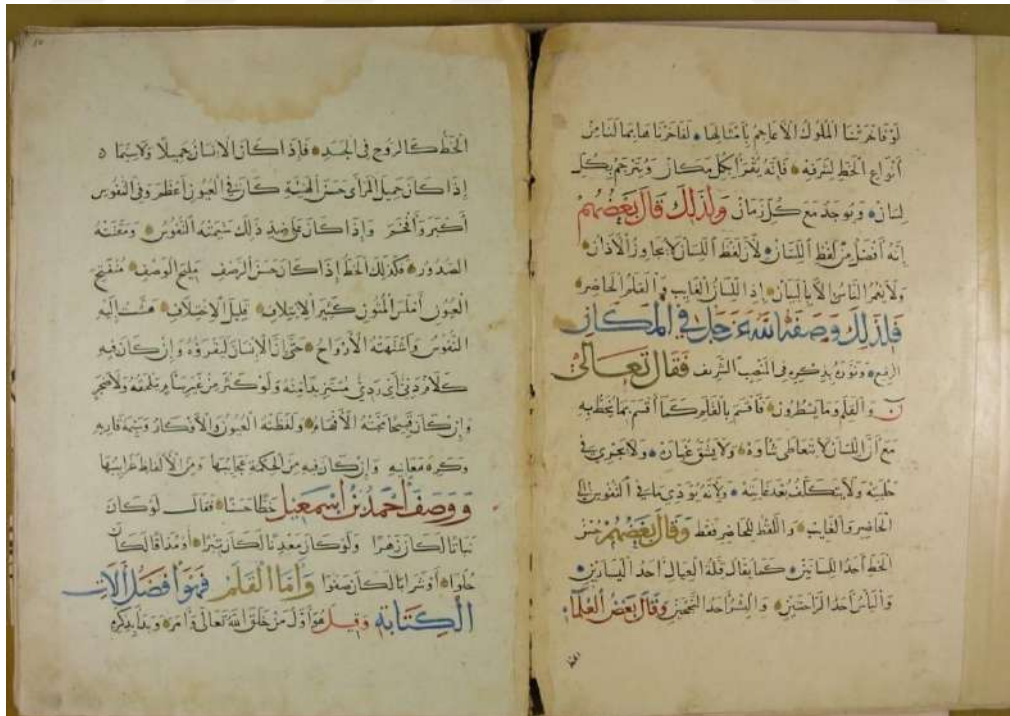 لَوْ فَاخَرَتْنَا الْمُلُوكُ الْأَعَاجِمُ بِأَمْثَالِهَا لَفَاخَرْنَاهَا بِمَا لَنَا مِنْ
أَنْوَاعِ الْخَطِّ لِشَرَفِهِ فَإِنَّهُ يُقْرَأُ بِكُلِّ مَكَانٍ وَيُتَرْجَمُ بِكُلِّ
لِسَانٍ وَيُوجَدُ مَعَ كُلِّ زَمَانٍ وَلِذَلِكَ قَالَ بَعْضُهُمْ
إِنَّهُ أَفْضَلُ مِنْ لَفْظِ اللِّسَانِ لِأَنَّ لَفْظَ اللِّسَانِ لَا يُجَاوِزُ الْآذَانَ
وَلَا يَعُمُّ النَّاسَ إِلَّا بِالْبَيَانِ إِذِ اللِّسَانُ الْغَايِبِ وَالْقَلَمُ الْحَاضِرِ
فَلِذَلِكَ وَصَفَهُ اللَّهُ عَزَّ وَجَلَّ فِي الْمَكَانِ
الرَّفِيعِ وَنَوَّهَ بِذِكْرِهِ فِي الْمَنْصِبِ الشَّرِيفِ فَقَالَ تَعَالَى
ن وَالْقَلَمِ وَمَا يَسْطُرُونَ فَأَقْسَمَ بِالْقَلَمِ كَمَا أَقْسَمَ بِمَا يُخَطُّ بِهِ
مَعَ أَنَّ اللِّسَانَ لَا يَتَعَاطَى شَأْوَهُ وَلَا يَشُقُّ غُبَارَهُ وَلَا يَجْرِي فِي
حَلْبَتِهِ وَلَا يَتَكَلَّفُ بُعْدَ غَايَتِهِ وَلِأَنَّهُ يُؤَدِّي مَا فِي النُّفُوسِ إِلَى
الْحَاضِرِ وَالْغَايِبِ وَاللَّفْظُ لِلْحَاضِرِ فَقَطْ وَقَالَ بَعْضُهُمْ حُسْنُ
الْخَطِّ أَحَدُ اللِّسَانَيْنِ كَمَا يُقَالُ قِلَّةُ الْعِيَالِ أَحَدُ الْيَسَارَيْنِ
وَالْيَأْسُ أَحَدُ الرَّاحَتَيْنِ وَالْبِشْرُ أَحَدُ وَقَالَ بَعْضُ الْعُلَمَاءِ
الخط
الْخَطُّ كَالرُّوحِ فِي الْجَسَدِ فَإِذَا كَانَ الْإِنْسَانُ جَمِيلًا وَلَاسِيَّمَا
إِذَا كَانَ جَمِيلَ الْمَرْأَى حَسَنَ كَانَ فِي الْعُيُونِ أَعْظَمَ وَفِي النُّفُوسِ
أَكْبَرَ وَأَفْخَمَ وَإِذَا كَانَ عَلَى ضِدِّ ذَلِكَ سَئِمَتْهُ النُّفُوسُ وَمَقَتَتْهُ
الصُّدُورُ فَكَذَلِكَ الْخَطُّ إِذَا كَانَ حَسَنَ الرَّصْفِ مَلِيحَ الْوَصْفِ مُفَتَّحَ
الْعُيُونِ أَمْلَسَ الْمُتُونِ كَثِيرَ الِايْتِلَافِ قَلِيلَ الِاخْتِلَافِ هَشَّتْ إِلَيْهِ
النُّفُوسُ وَاشْتَهَتْهُ الْأَرْوَاحُ حَتَّى إِنَّ الْإِنْسَانَ لَيَقْرَؤُهُ وَإِنْ كَانَ فِيهِ
كَلَامٌ دَنِيٌّ رَدِيٌّ وَلَوْ كَثُرَ مِنْ غَيْرِ سَآمَةٍ تَلْحَقُهُ وَلَا ضَجَرٍ
وَإِنْ كَانَ قَبِيحًا مَجَّتْهُ الْأَفْهَامُ وَلَفَظَتْهُ الْعُيُونُ وَالْأَفْكَارُ وَسَئِمَهُ قَارِيهِ
وَكَرِهَ مَعَانِيهِ وَإِنْ كَانَ فِيهِ مِنَ الْحِكْمَةِ عَجَايِبُهَا وَمِنَ الْأَلْفَاظِ غَرَايِبُهَا
وَوَصَفَ أَحْمَدُ بْنُ إِسْمَعِيلَ خَطًّا حَسَنًا فَقَالَ لَوْ كَانَ
نَبَاتًا لَكَانَ زَهْرًا وَلَوْ كَانَ مَعْدِنًا لَكَانَ تِبْرًا أَوْ مَذَاقًا لَكَانَ
حُلْوًا أَوْ شَرَابًا لَكَانَ صَفْوًا وَأَمَّا الْقَلَمُ فَهُوَ أَفْضَلُ آلَاتِ
الْكِتَابَةِ وَقِيلَ هُوَ أَوَّلُ مَنْ خَلَقَ اللَّهُ تَعَالَى وَأَمَرَهُ وَبَدَأَ بِذِكْرِهِ